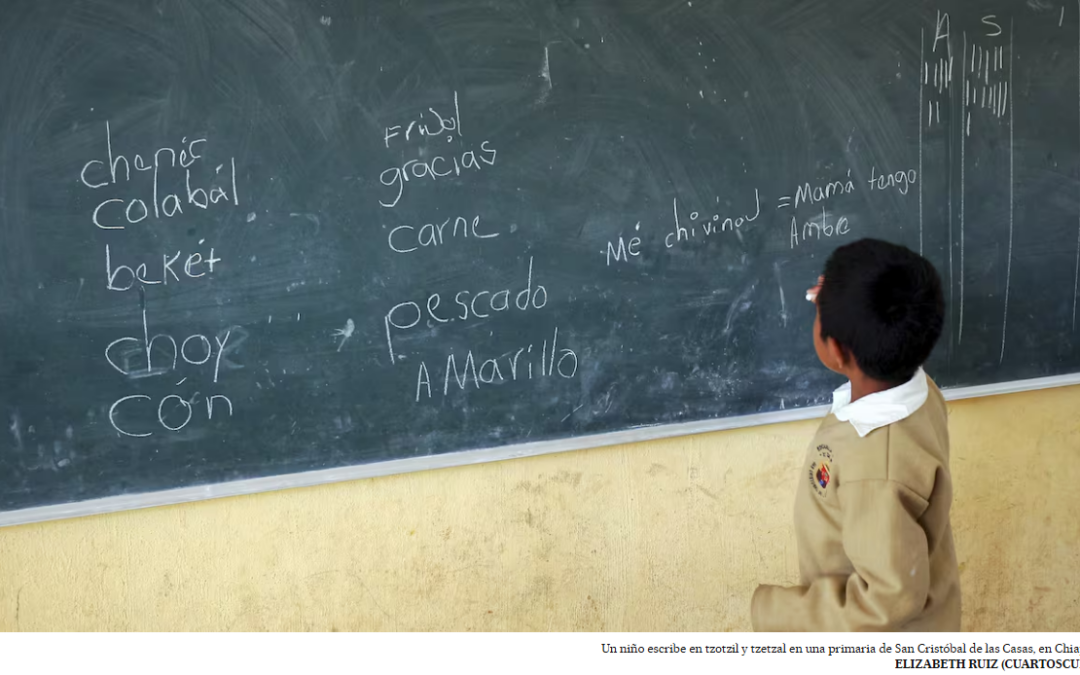 chenéc
colabál
bekét
choy
cón
Frijol
gracias
carne
pescado
AMarillo
Mé chivinaJ =Mamá tengo
Ambre
A S
Un niño escribe en tzotzil y tzetzal en una primaria de San Cristóbal de las Casas, en Chia
ELIZABETH RUIZ (CUARTOSCU